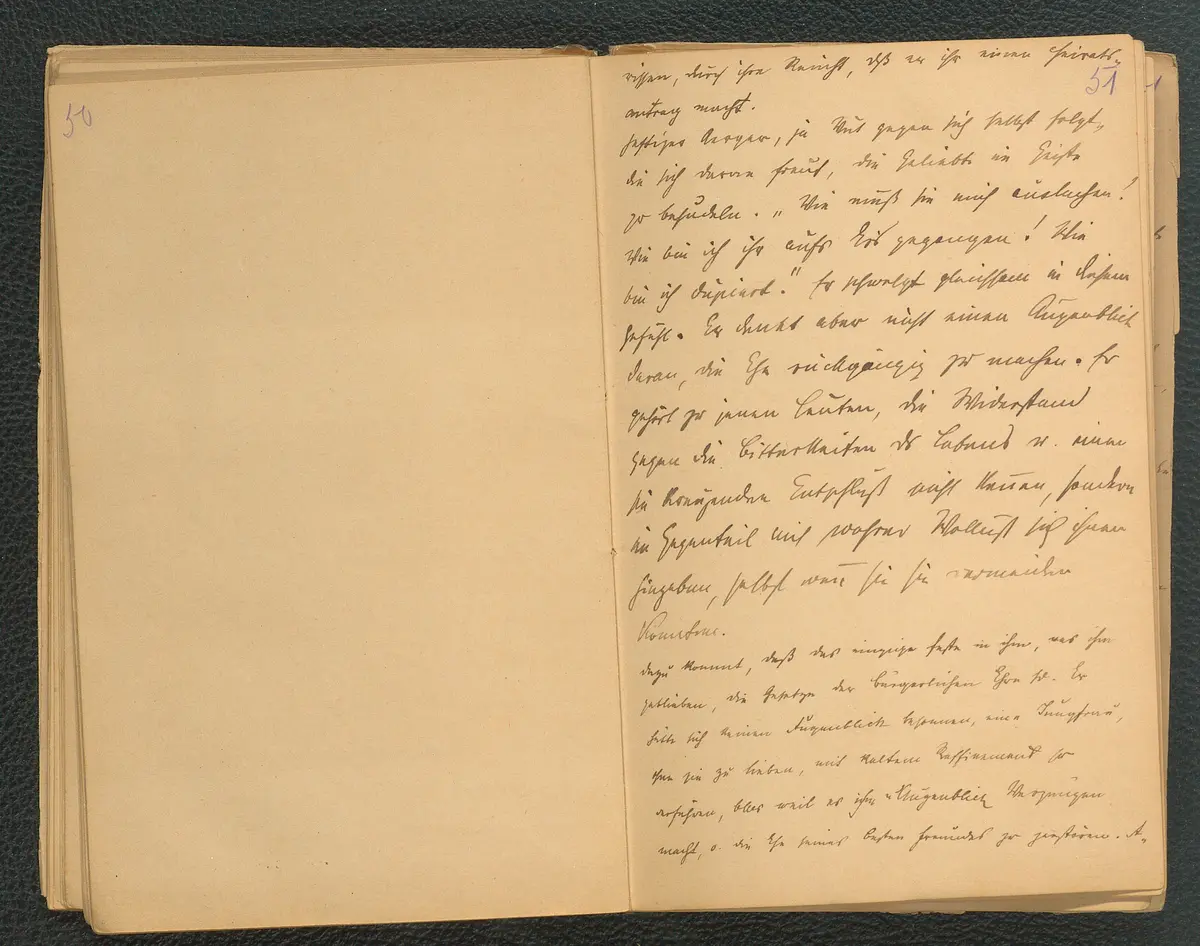 50
51
rissen, durch ihre Keuschh, daß er ihr einen Heirats-
antrag macht.
Heftiger Aerger, ja Wut gegen sich selbst folgt,
die sich daran freut, die Geliebte im Geiste
zu besudeln. „Wie muß sie mich auslachen!
Wie bin ich ihr aufs Eis gegangen! Wie
bin ich düpiert." Er schwelgt gleichsam in diesem
Gefühl. Er denkt aber nicht einen Augenblick
daran, die Ehe rückgängig zu machen. Er
gehört zu jenen Leuten, die Widerstand
gegen die Bitterkeiten des Lebens u. einen
sie kreuzenden Entschluß nicht kennen, sondern
im Gegenteil mit wahrer Wollust sich ihnen
hingeben, selbst wenn sie sie vermeiden
könnten.
Dazu kommt, daß das einzige feste in ihm, was ihm
geblieben, die Gesetze der bürgerlichen Ehre sd. Er
hätte sich keinen Augenblick besonnen, eine Jungfrau,
ohne sie zu lieben, mit kaltem Raffinement zu
verführen, blos weil es ihm Augenblick Vergnügen
macht, o. die Ehe seines besten Freundes zu zerstören. A-